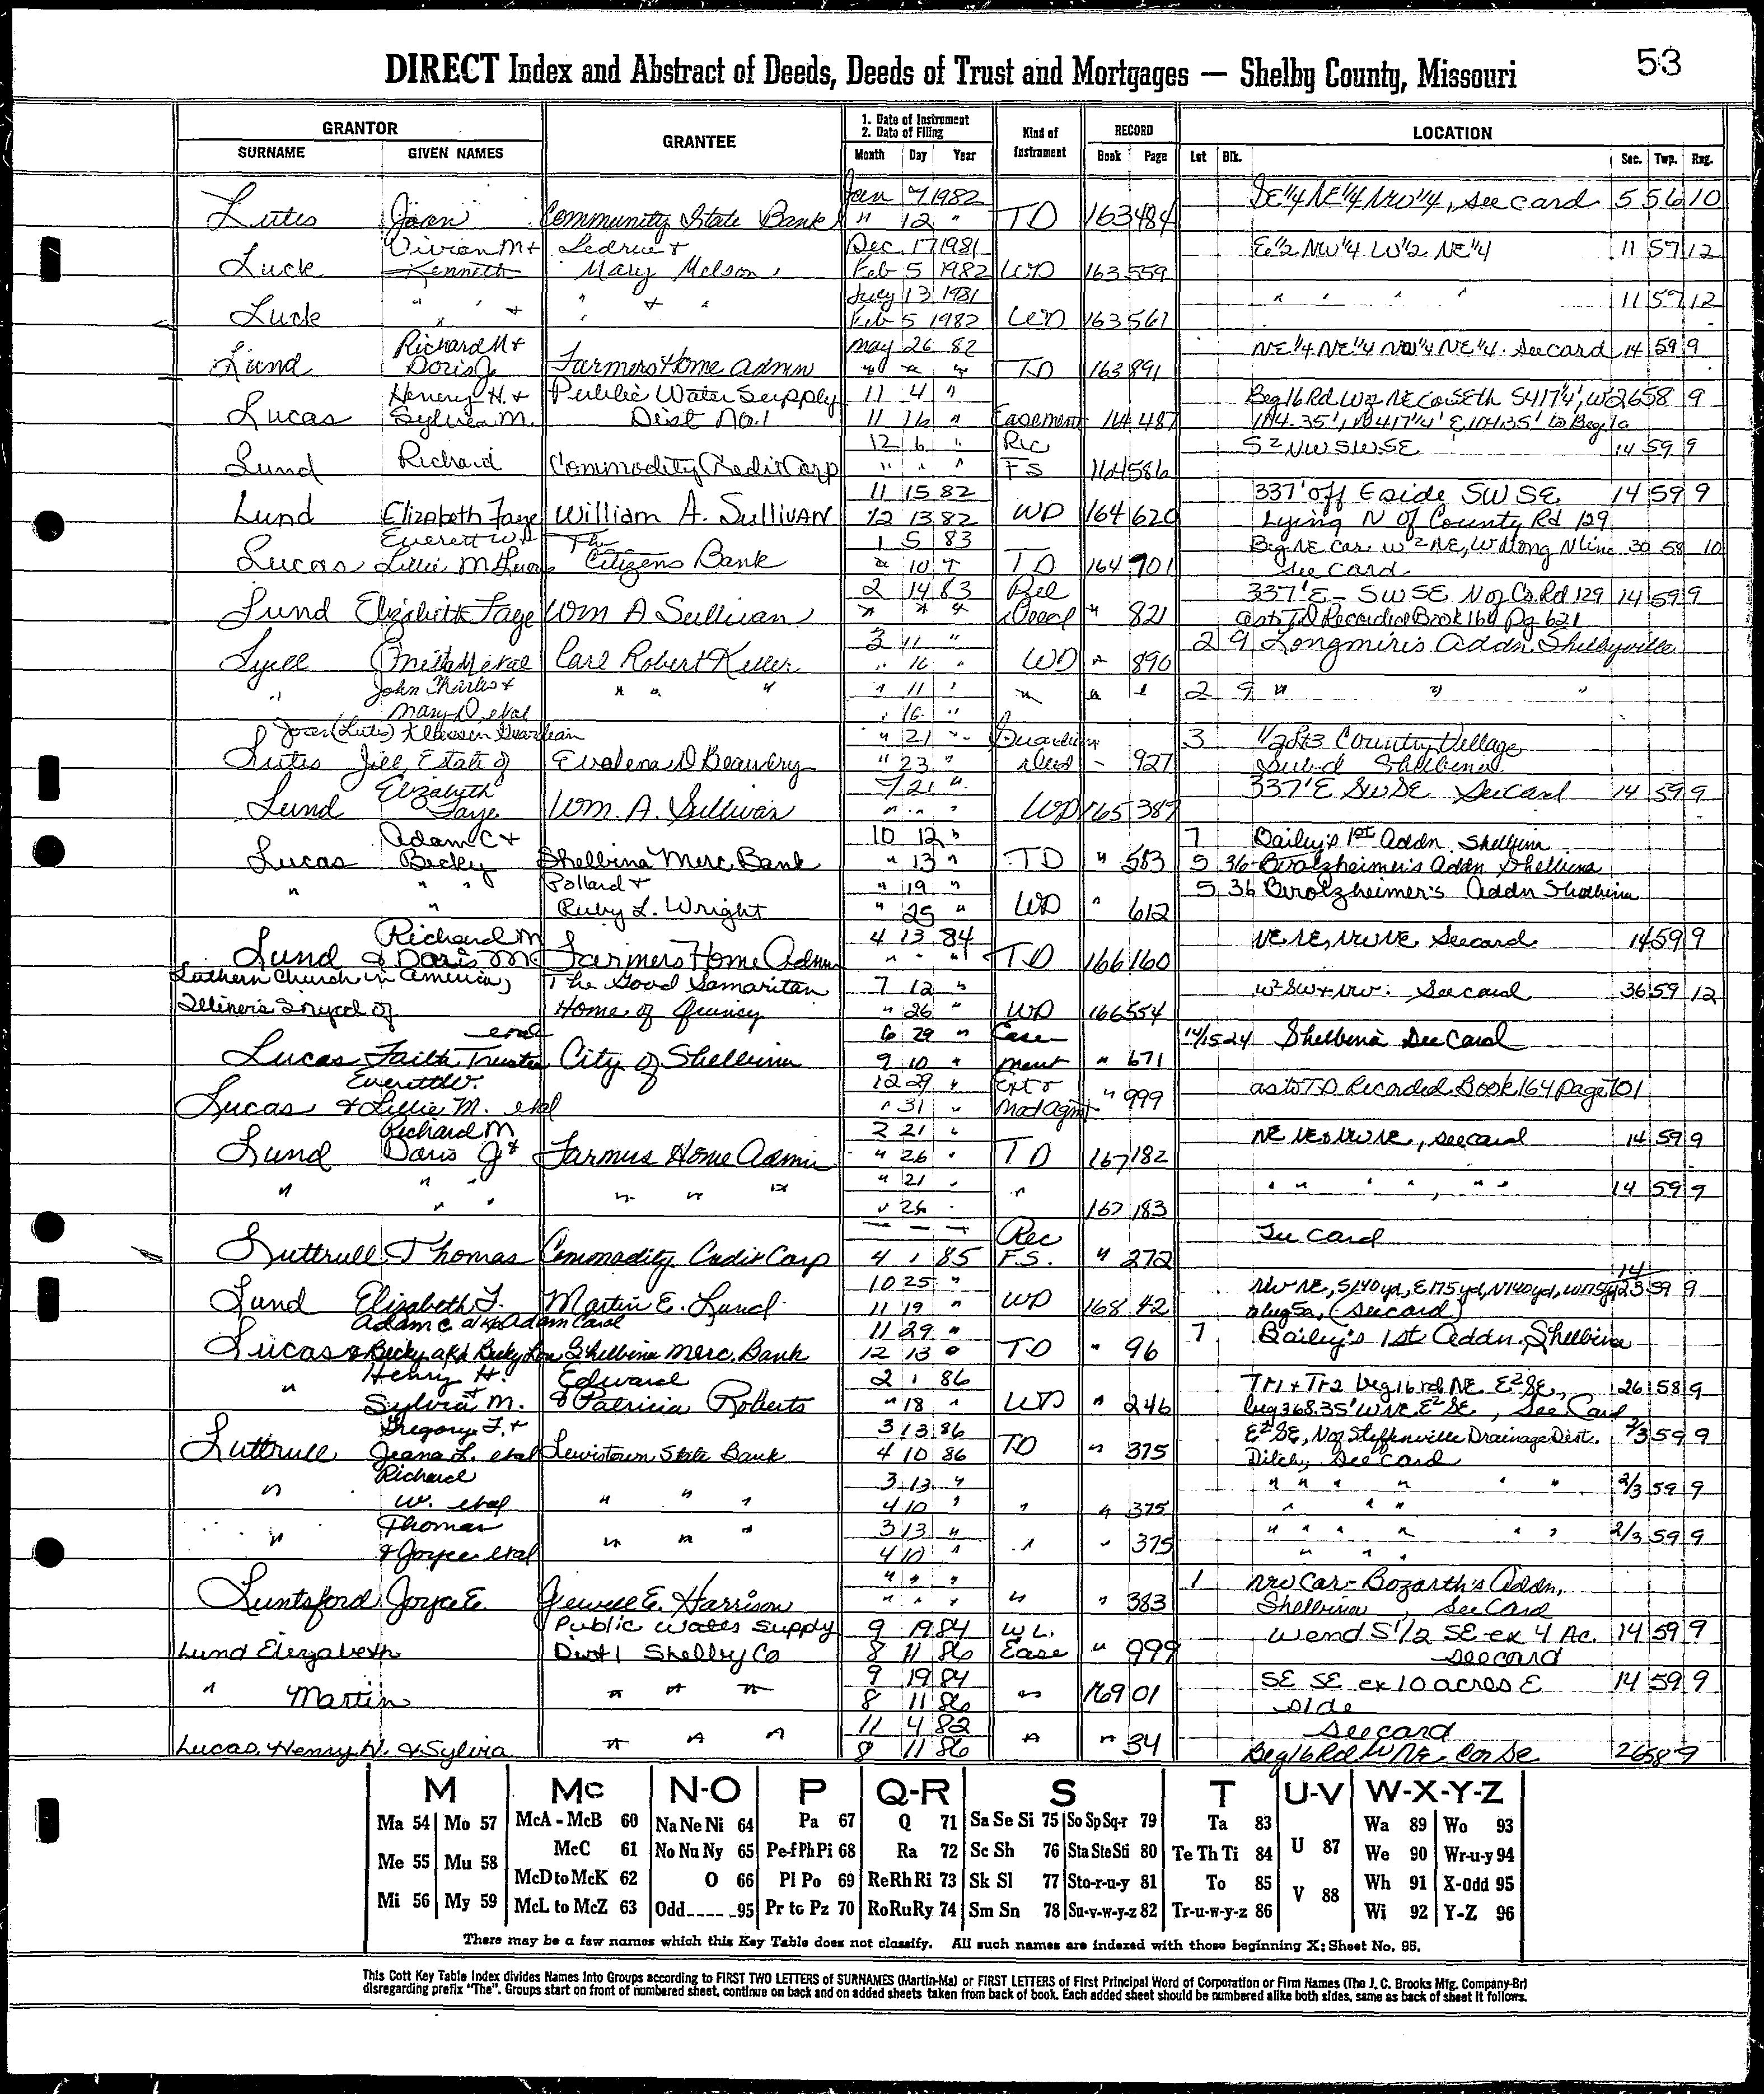 53
DIRECT Index and Abstract of Deeds, Deeds of Trust and Mortgages — Shelby County, Missouri
GRANTOR GRANTEE 1. Date of Instrument 2. Date of Filing Kind of Instrument RECORD LOCATION
SURNAME GIVEN NAMES Month Day Year Book Page Lot Blk. Sec. Twp. Rng.
Jan 7 1982 SE 1/4 NE 1/4 NW 1/4, see card 5 56 10
Lutes Joan Community State Bank " 12 " TD 163 484
Vivian M + Ledrue + Dec. 17 1981 E 1/2 NW 1/4 W 1/2 NE 1/4 11 57 12
Luck Kenneth Mary Melson Feb 5 1982 WD 163 559
" " + " + " July 13 1981 " " " " 11 57 12
Luck Feb 5 1982 WD 163 561
Richard M + May 26 82 NE 1/4 NE 1/4 NW 1/4 NE 1/4. See card 14 59 9
Lund Doris J. Farmers Home Admn " " " TD 163 891
Henry H. + Public Water Supply 11 4 " Beg 16 Rd W of NE Cor SE th S 417 1/4', W 26 58 9
Lucas Sylvia M. Dist No. 1 11 16 " Easement 164 487 104.35', N 417 1/4' E 104.35' to Beg 1a
12 6 " Rec S2 NW SW SE 14 59 9
Lund Richard Commodity Credit Corp " " " FS 164 586
11 15 82 337' off E side SW SE 14 59 9
Lund Elizabeth Faye William A. Sullivan 12 13 82 WD 164 620 Lying N of County Rd 129
Everett W. + The 1 5 83 Beg NE Cor. W2 NE, W Along N line 30 58 10
Lucas Lillie M Lucas Citizens Bank " 10 " TD 164 701 See Card
2 14 83 Rel 337' E - SW SE N of Co. Rd 129 14 59 9
Lund Elizabeth Faye Wm A Sullivan " " " Deed " 821 as to TD Recorded Book 164 Pg 621
3 11 " 2 9 Longmire's Addn Shelbyville
Lyell et al Carl Robert Keller " 16 " WD " 890
" John Charles + " " " " 11 " " " " 2 9 " " "
Mary D. et al " 16 "
Joan (Lutes) Klassen Guardian " 21 " Guardian " 3 1/2 of 3 Country Village
Lutes Jill Estate of Evalena D Beaudry " 23 " deed " 927 Subd Shelbina
Elizabeth 7 21 " 337' E SW SE See Card 14 59 9
Lund Faye Wm. A. Sullivan " " " WD 165 387
Adam C + 10 12 " 7 Bailey's 1st Addn Shelbina
Lucas Becky Shelbina Merc. Bank " 13 " TD " 583 5 36 Berolzheimer's Addn Shelbina
" " " Pollard + " 19 " 5 36 Berolzheimer's Addn Shelbina
" Ruby L. Wright " 25 " WD " 612
Richard M 4 13 84 NE NE, NW NE See card 14 59 9
Lund & Doris M Farmers Home Admn " " " TD 166 160
Luthern Church in America, The Good Samaritan 7 12 " W2 SW + NW: See card 36 59 12
Illinois Synod of Home of Quincy " 26 " WD 166 554
et al 6 29 " Ease 14/15 24 Shelbina See Card
Lucas Faith Trustee City of Shelbina 9 10 " ment " 671
Everett W. 12 29 " Ext & as to TD Recorded Book 164 Page 701
Lucas & Lillie M. et al " 31 " Mod Agmt " 999
Richard M 2 21 " NE NE & NW NE, see card 14 59 9
Lund Doris J + Farmers Home Admin " 26 " TD 167 182
" " " " " " " 21 " " " " " " " " 14 59 9
" " " 26 " 167 183
— — — Rec See Card
Luttrull Thomas Commodity Credit Corp 4 1 85 F.S. " 272
10 25 " NW NE, S 140 yd, E 175 yd, N 140 yd, W 175 yd 14 23 59 9
Lund Elizabeth F. Martin E. Lund 11 19 " WD 168 42 abeg 5a, (see card)
Adam C aka Adam Carol 11 29 " 7 Bailey's 1st Addn, Shelbina
Lucas & Becky aka Becky Lou Shelbina Merc. Bank 12 13 " TD " 96
" Henry H. Edward 2 1 86 Tr 1 + Tr 2 beg 16 rd NE E2 SE, 26 58 9
+ Sylvia M. & Patricia Roberts " 18 " WD " 246 beg 368.35' W NE E2 SE, See Card
Gregory F. + 3 13 86 E2 SE, N of Steffenville Drainage Dist. 2/3 59 9
Luttrull Jeana L. et al Lewistown State Bank 4 10 86 TD " 375 Ditch, See card
" Richard 3 13 " " " " " " " 2/3 59 9
W. et al " " " 4 10 " " " 375 " " "
" Thomas " " " 3 13 " " " " " " " 2/3 59 9
& Joyce et al 4 10 " " " 375 " " "
" " " 1 NW Cor - Bozarth's Addn,
Luntsford Joyce E. Jewell E. Harrison " " " " " 383 Shelbina, See Card
Public Water Supply 9 19 84 WL. W end S 1/2 SE ex 4 Ac. 14 59 9
Lund Elizabeth Dist 1 Shelby Co 8 11 86 Ease " 999 see card
9 19 84 SE SE ex 10 acres E 14 59 9
" Martin " " " 8 11 86 " 169 01 side
11 4 82 see card
Lucas, Henry H. & Sylvia " " " 8 11 86 " " 34 Beg 16 Rd W NE Cor SE 26 58 9
M Mc N-O P Q-R S T U-V W-X-Y-Z
Ma 54 Mo 57 McA - McB 60 Na Ne Ni 64 Pa 67 Q 71 Sa Se Si 75 So Sp Sq-r 79 Ta 83 U 87 Wa 89 Wo 93
Me 55 Mu 58 McC 61 No Nu Ny 65 Pe-f Ph Pi 68 Ra 72 Sc Sh 76 Sta Ste Sti 80 Te Th Ti 84 V 88 We 90 Wr-u-y 94
McD to McK 62 O 66 Pl Po 69 Re Rh Ri 73 Sk Sl 77 Sto-r-u-y 81 To 85 Wh 91 X-Odd 95
Mi 56 My 59 McL to McZ 63 Odd 95 Pr to Pz 70 Ro Ru Ry 74 Sm Sn 78 Su-v-w-y-z 82 Tr-u-w-y-z 86 Wi 92 Y-Z 96
There may be a few names which this Key Table does not classify. All such names are indexed with those beginning X; Sheet No. 95.
This Cott Key Table Index divides Names Into Groups according to FIRST TWO LETTERS of SURNAMES (Martin-Ma) or FIRST LETTERS of First Principal Word of Corporation or Firm Names (The J. C. Brooks Mfg. Company-Br)
disregarding prefix "The". Groups start on front of numbered sheet, continue on back and on added sheets taken from back of book. Each added sheet should be numbered alike both sides, same as back of sheet it follows.